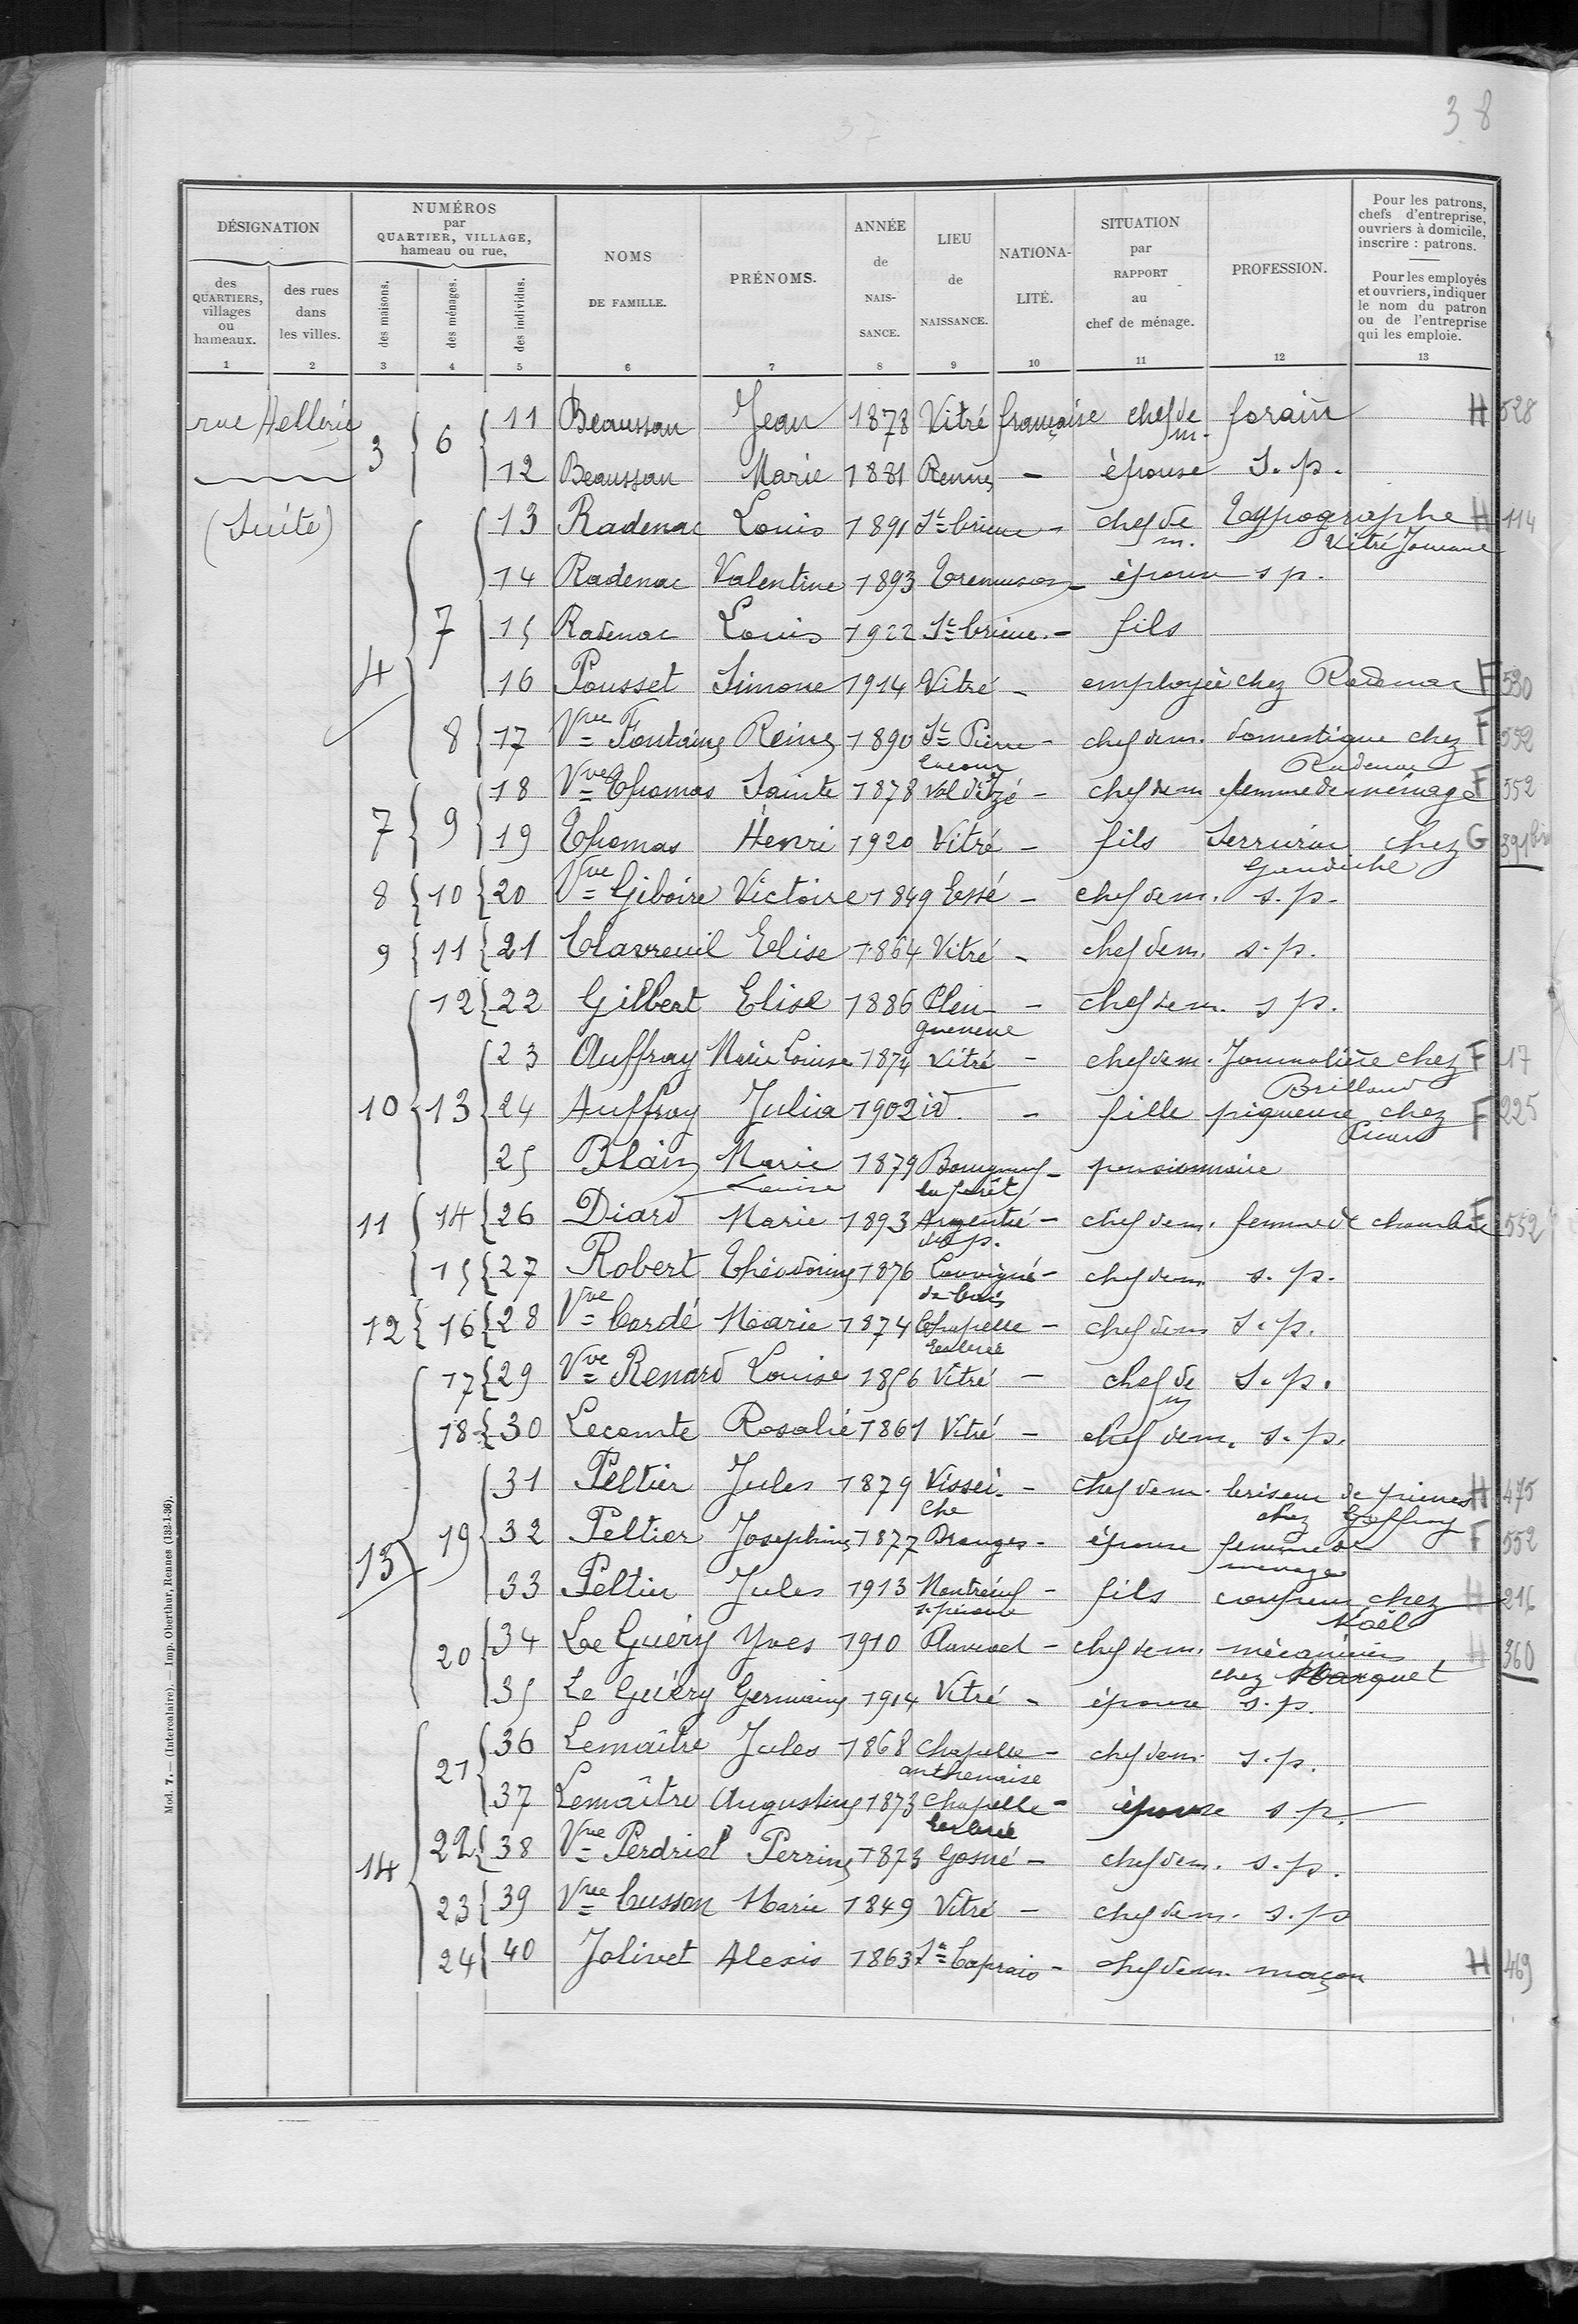 38
37
DÉSIGNATION
NUMÉROS
par
QUARTIER, VILLAGE,
hameau ou rue,
NOMS
DE FAMILLE.
PRÉNOMS.
ANNÉE
de
NAIS-
SANCE.
LIEU
de
NAISSANCE.
NATIONA-
LITÉ.
SITUATION
par
RAPPORT
au
chef de ménage.
PROFESSION.
Pour les patrons,
chefs d'entreprise,
ouvriers à domicile,
inscrire : patrons.
Pour les employés
et ouvriers, indiquer
le nom du patron
ou de l'entreprise
qui les emploie.
des
QUARTIERS,
villages
ou
hameaux.
des rues
dans
les villes.
des maisons.
des ménages.
des individus.
1 2 3 4 5 6 7 8 9 10 11 12 13
rue Hellerie 3 6 11 Beaussan Jean 1878 Vitré française chef de m. forain H 528
12 Beaussan Marie 1881 Rennes - épouse s. p.
(Suite) 13 Radenac Louis 1891 St brieuc - chef de m. Typographe H 114
Vitré Journal
14 Radenac Valentine 1893 Tremuson - épouse s p.
7 15 Radenac Louis 1922 St brieuc - fils
4 16 Pousset Simone 1914 Vitré - employée chez Radenac F 530
8 17 Vve Fontaine Reine 1890 St Pierre - chef de m. domestique chez F 552
Radenac
18 Vve Thomas Sainte 1878 Val d'Izé - chef de m femme de ménage F 552
7 9 19 Thomas Henri 1920 Vitré - fils Serrurier chez G 391 bis
8 10 20 Vve Giboire Victoire 1849 Essé - chef de m. s. p.
9 11 21 Clavreuil Elise 1864 Vitré - chef de m. s. p.
12 22 Gilbert Elise 1886 Pleu- - chef de m. s p.
gueneuc
23 Auffray Marie Louise 1874 Vitré - chef de m. Journalière chez F 17
Brilland
10 13 24 Auffray Julia 1902 id. - fille piqueuse chez F 225
25 Blain Marie 1879 Bourgneuf - pensionnaire
Louise la forêt
11 14 26 Diard Marie 1893 Argentré - chef de m. femme de chambre F 552
du p.
15 27 Robert Théodorine 1876 Louvigné - chef de m s. p.
de bais
12 16 28 Vve Cordé Marie 1874 Chapelle - chef de m s. p.
Erbrée
17 29 Vve Renard Louise 1856 Vitré - chef de m s. p.
18 30 Lecomte Rosalie 1861 Vitré - chef de m. s. p.
31 Peltier Jules 1879 Vissei- - chef de m. briseur de pierres H 475
che chez Geffroy
13 19 32 Peltier Josephine 1877 Dranges - épouse femme de F 552
ménage
33 Peltier Jules 1913 Montreuil - fils coupeur chez H 216
s. pérouse Noël
20 34 Le Guéry Yves 1910 - chef de m. mécanicien H 360
chez Marquet
35 Le Guéry Germaine 1914 Vitré - épouse s. p.
21 36 Lemaître Jules 1868 Chapelle - chef de m s. p.
anthenaise
37 Lemaître Augustine 1873 Chapelle - épouse s. p.
Erbrée
14 22 38 Vve Perdriel Perrine 1873 Gosné - chef de m. s. p.
23 39 Vve Cusson Marie 1849 Vitré - chef de m. s. p
24 40 Jolivet Alexis 1863 St Caprais - chef de m. maçon H 469
Mod. 7. — (Intercalaire). Imp. Oberthur, Rennes (132-1-36).